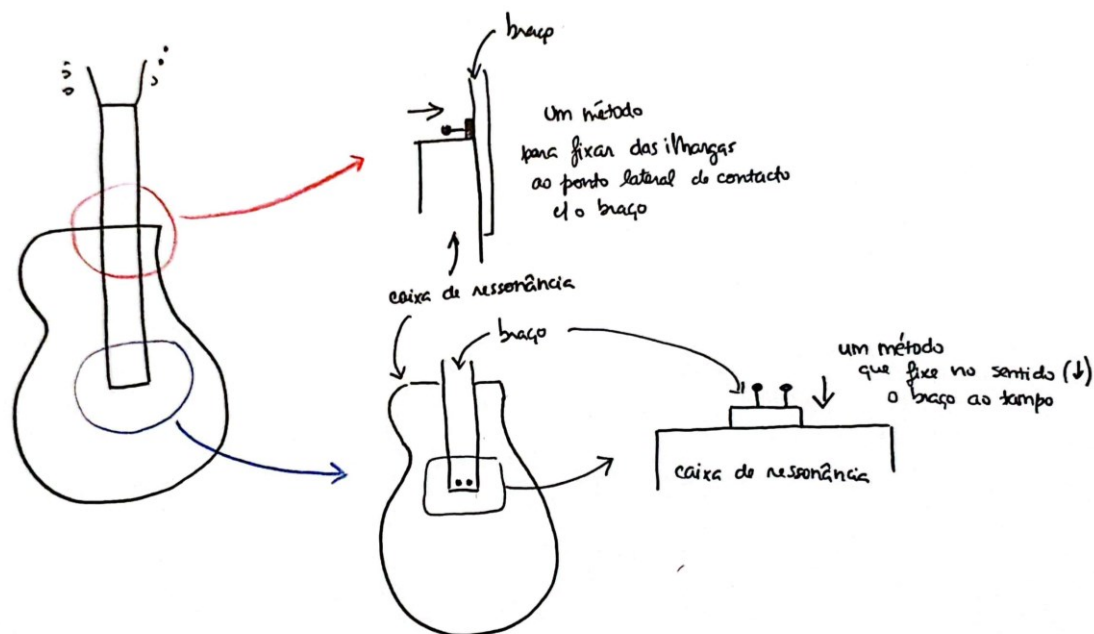 braço
um método
para fixar das ilhargas
ao ponto lateral de contacto
c/ o braço
caixa de ressonância
braço
um método
que fixe no sentido (↓)
o braço ao tampo
caixa de ressonância